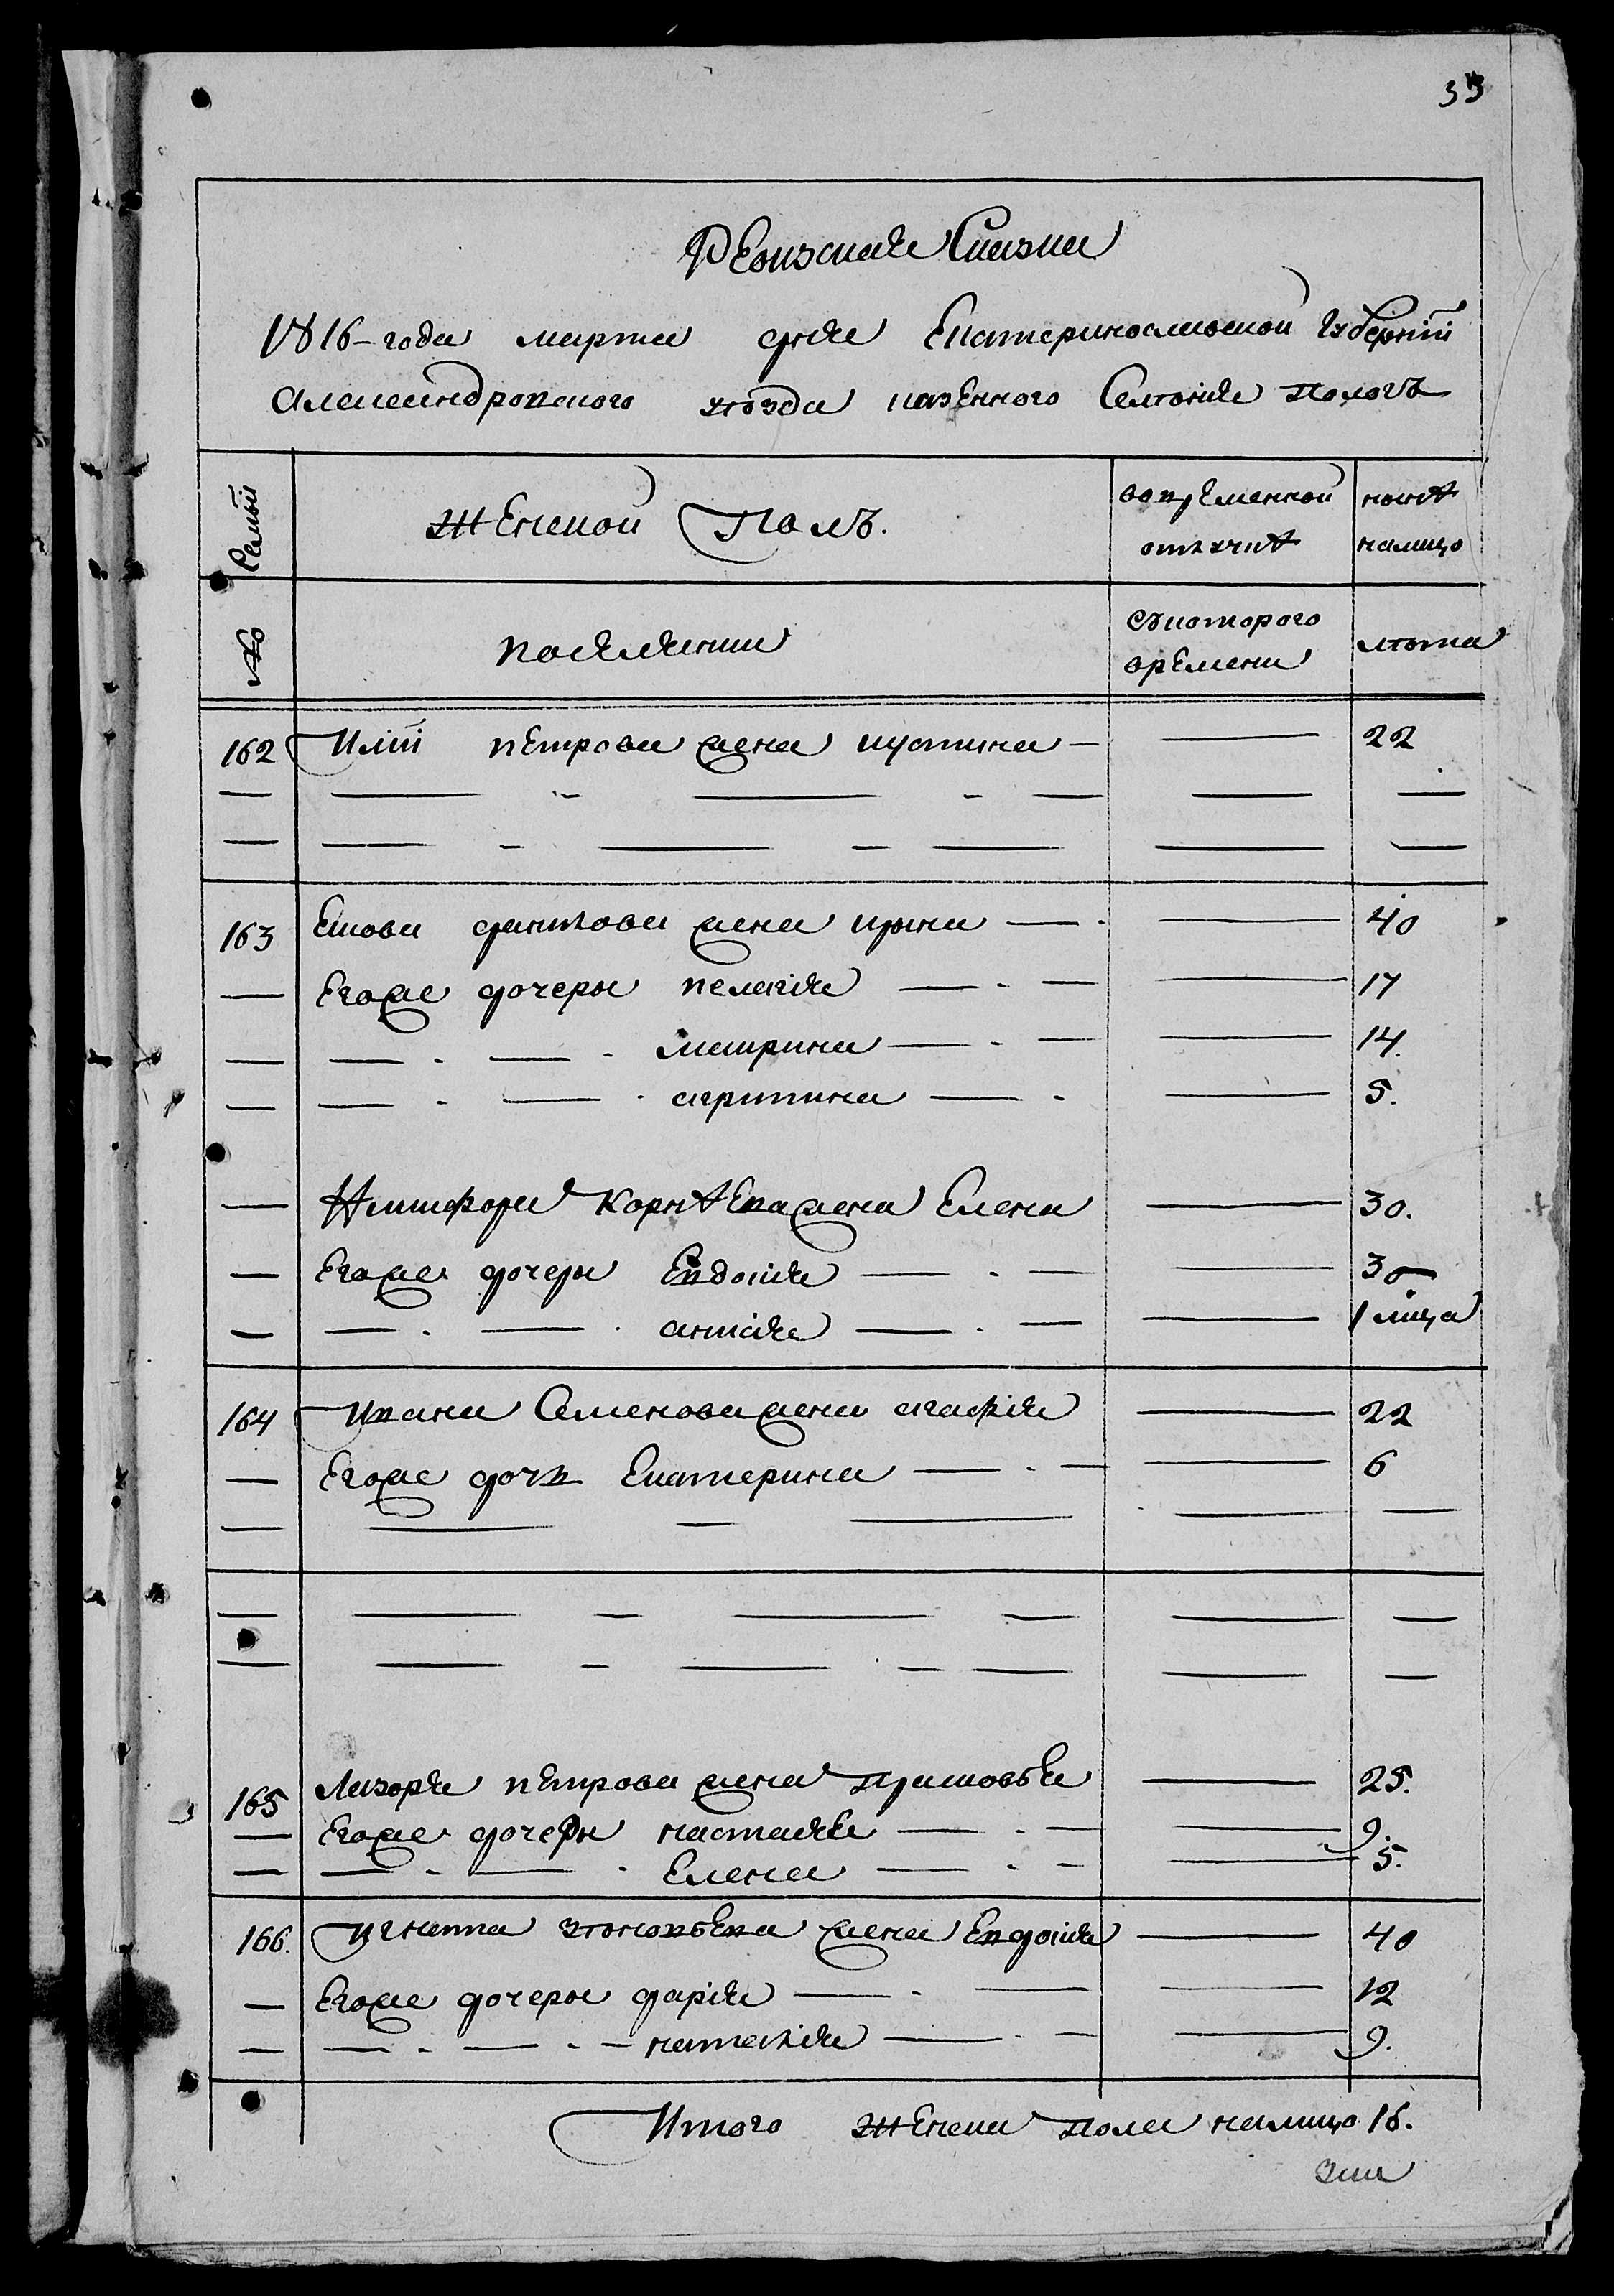 33
Ревизская Сказка
1816-года марта дня Екатеринославской губернiи
Александровского уѣзда казенного Селенiя Пологъ
Семьи
женской Полъ.
во временной отлучкѣ
нынѣ налицо
№
поселянки
съ которого времени
лѣта
162 Илiи петрова жена иустина — 22
163 Екова данилова жена ирина — 40
— Егоже дочеры пелагiя — 17
— — матрина — 14.
— — агрипина — 5.
— Никифора Корнѣева жена Елена — 30.
— Егоже дочеры Евдокiя — 3
— — анна — 1 мица
164 Ивана Семенова жена агафiя — 22
— Егоже дочь Екатерина — 6
165 Лазоря петрова жена Прасковья — 25.
— Егоже дочеры настася — 9.
— — Елена — 5.
166. Игната жена Евдокiя — 40
— Егоже дочеры дарiя — 12
— — наталiя — 9.
Итого женска пола налицо 16.